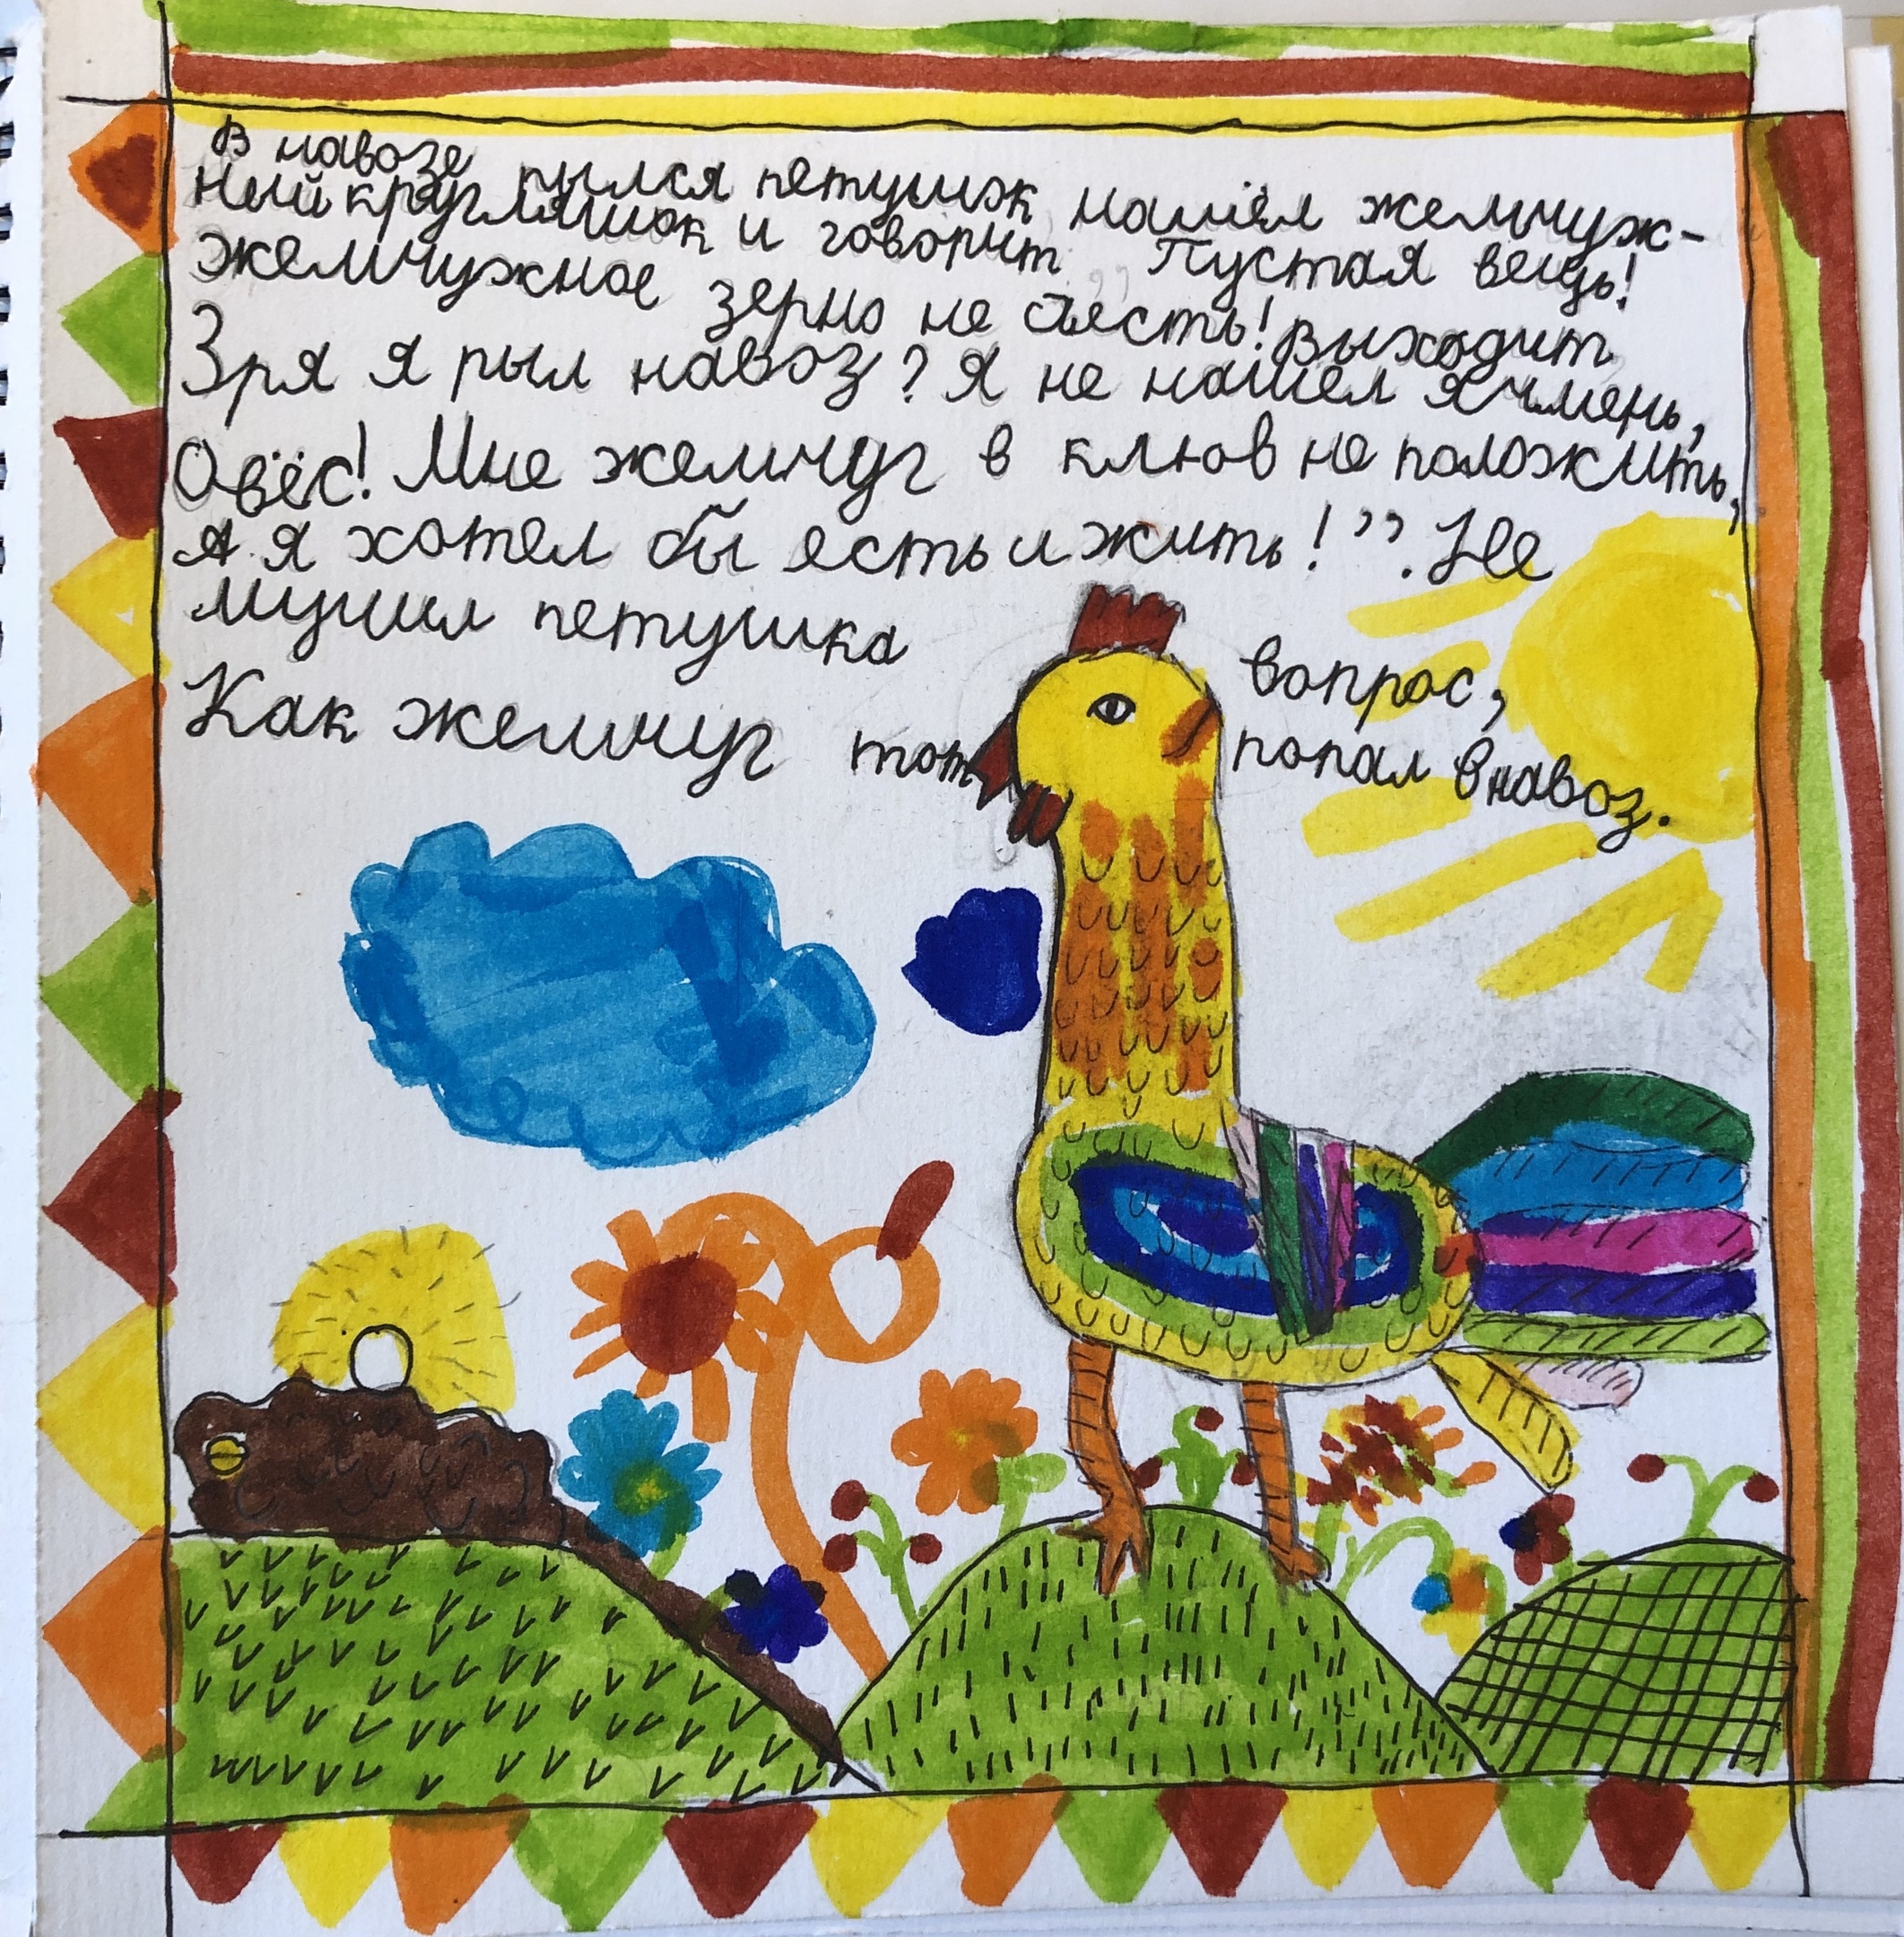 В навозе рылся петушок нашёл жемчуж-
ный кругляшок и говорит „Пустая вещь!
жемчужное зерно не съесть! Выходит
Зря я рыл навоз? Я не нашёл ячмень,
Овёс! Мне жемчуг в клюв не положить,
А я хотел бы есть и жить!”. Не
мучил петушка вопрос,
Как жемчуг тот попал в навоз.